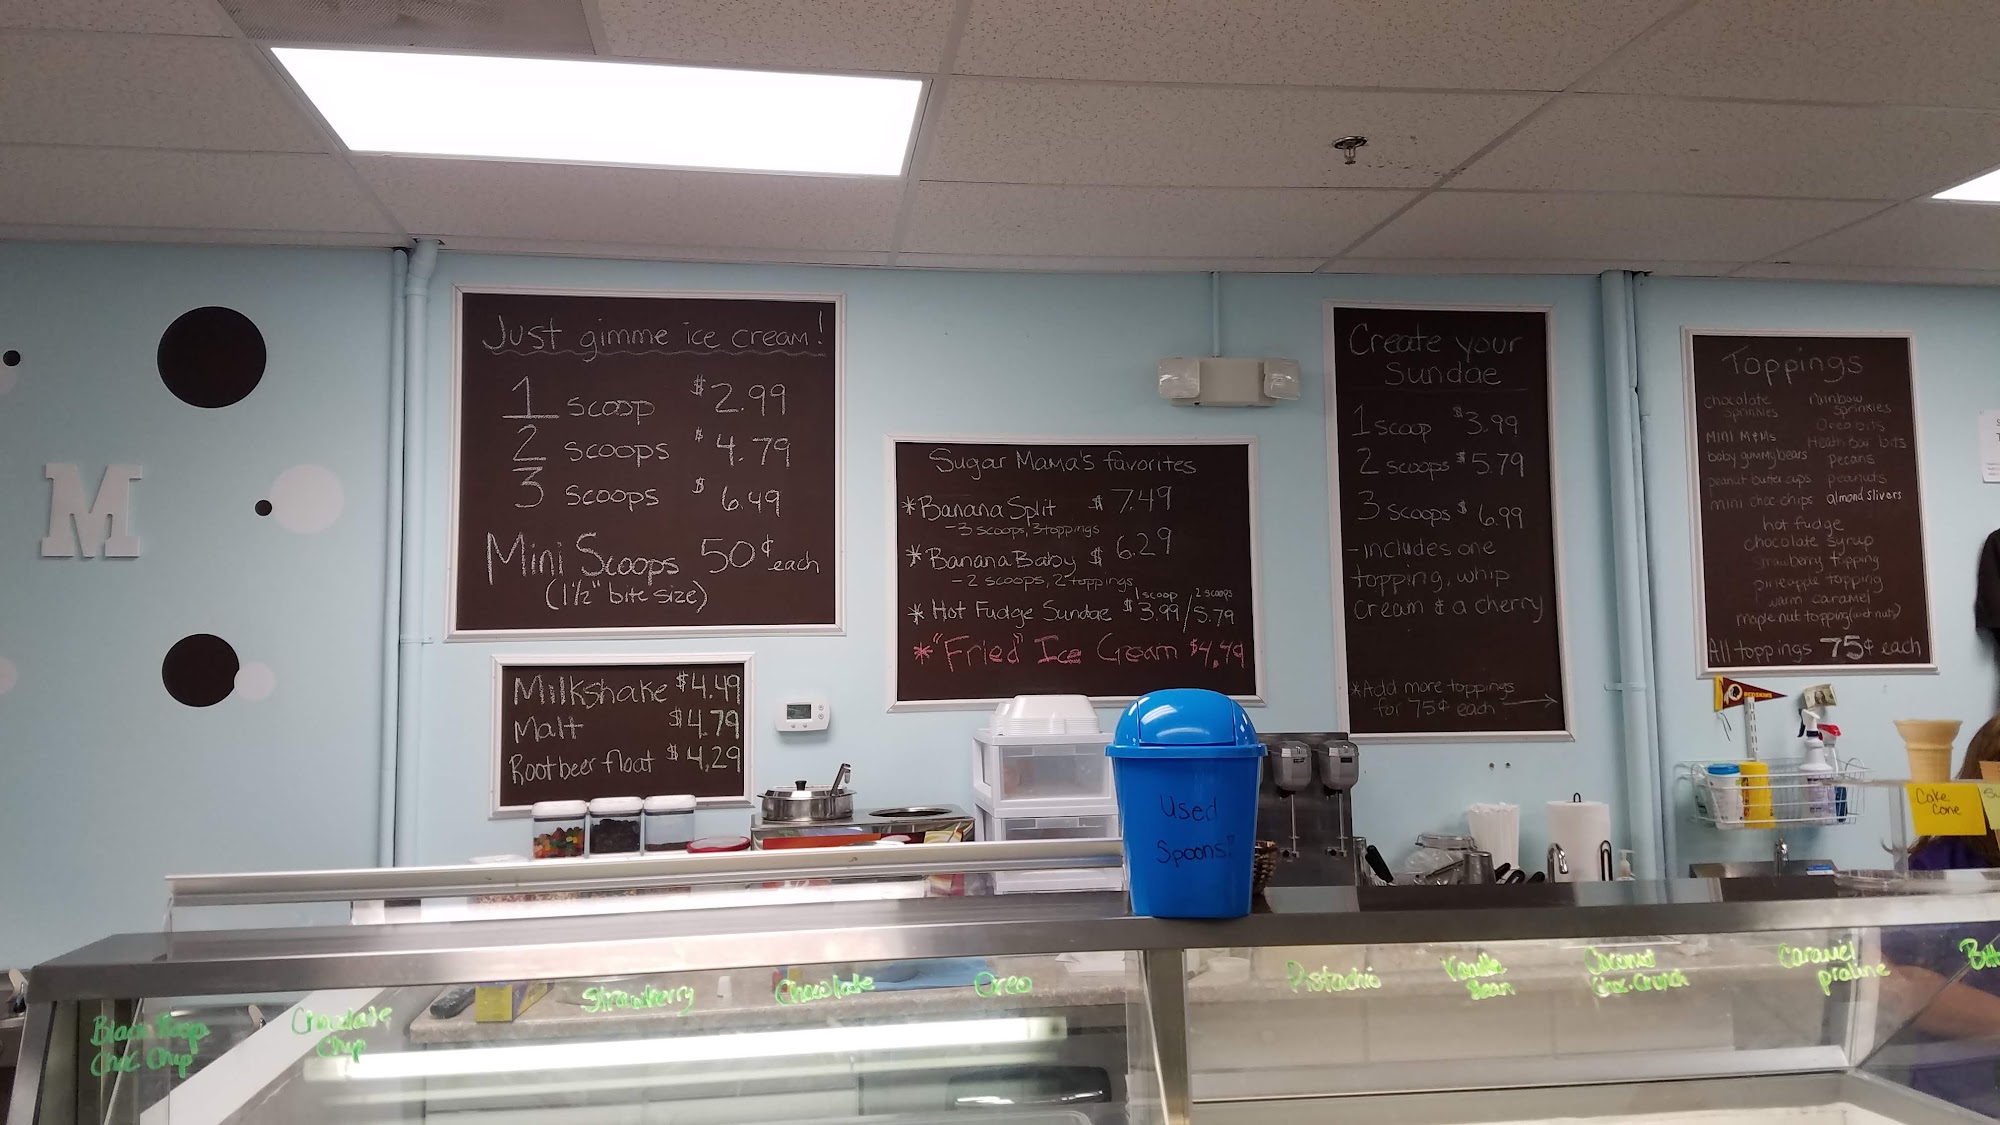 M
Just gimme ice cream!
1 scoop $2.99
2 scoops $4.79
3 scoops $6.49
Mini Scoops 50¢ each
(1½" bite size)
Milkshake $4.49
Malt $4.79
Rootbeer float $4.29
Sugar Mama's favorites
*Banana Split $7.49
-3 scoops, 3 toppings
*Banana Baby $6.29
-2 scoops, 2 toppings
1 scoop 2 scoops
*Hot Fudge Sundae $3.99/5.79
*"Fried" Ice Cream $4.49
Create your
Sundae
1 scoop $3.99
2 scoops $5.79
3 scoops $6.99
-includes one
topping, whip
cream & a cherry
*Add more toppings
for 75¢ each
Toppings
chocolate sprinkles
rainbow sprinkles
Mini M&Ms
Oreo bits
Heath Bar bits
baby gummy bears
pecans
peanut butter cups
peanuts
mini choc chips
almond slivers
hot fudge
chocolate syrup
strawberry topping
pineapple topping
warm caramel
maple nut topping (wet nuts)
All toppings 75¢ each
REDSKINS
Cake
Cone
Used
Spoons
Black
Choc Chip
Chocolate
Chip
Strawberry
Chocolate
Oreo
Pistachio
Vanilla
Bean
Coconut
Choc. Crunch
Caramel
praline